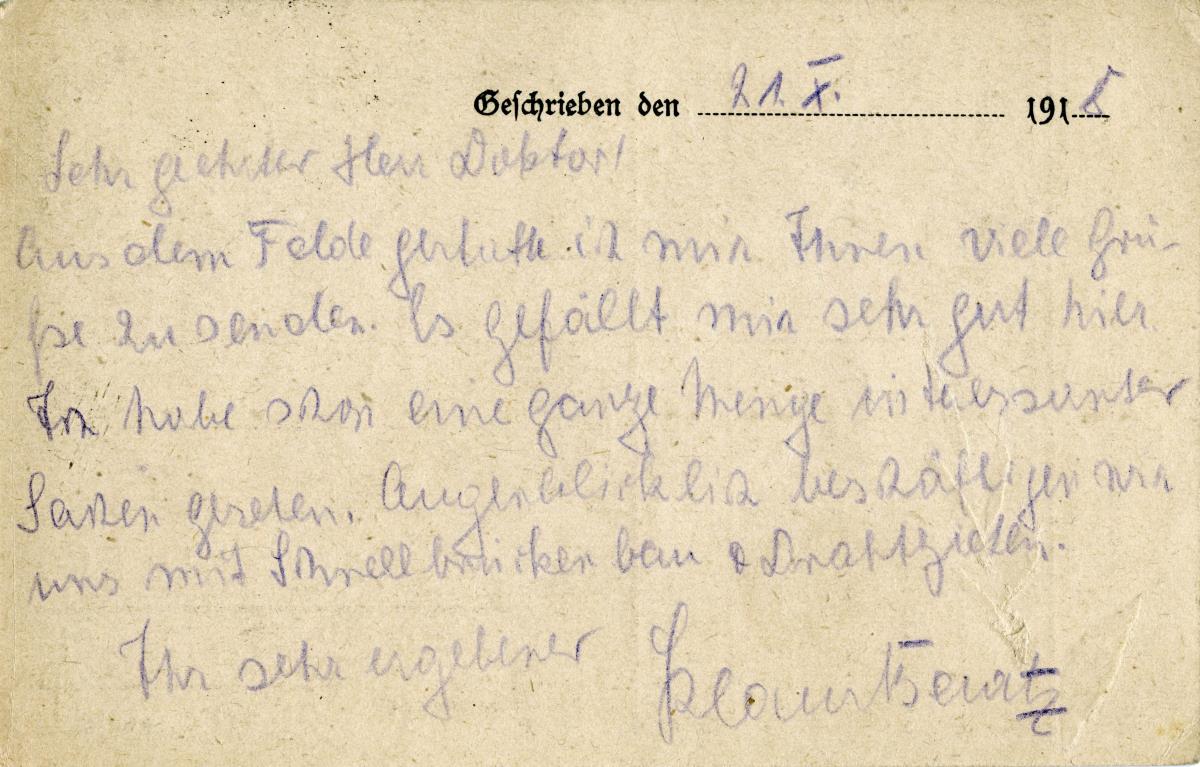 Geschrieben den 21. X. 1915
Sehr geehrter Herr Doktor!
Aus dem Felde gestatte ich mir Ihnen viele Grü-
ße zu senden. Es gefällt mir sehr gut hier.
Ich habe schon eine ganze Menge interessanter
Sachen gesehen. Augenblicklich beschäftigen wir
uns mit Schnellbrückenbau & Drahtziehen.
Ihr sehr ergebener